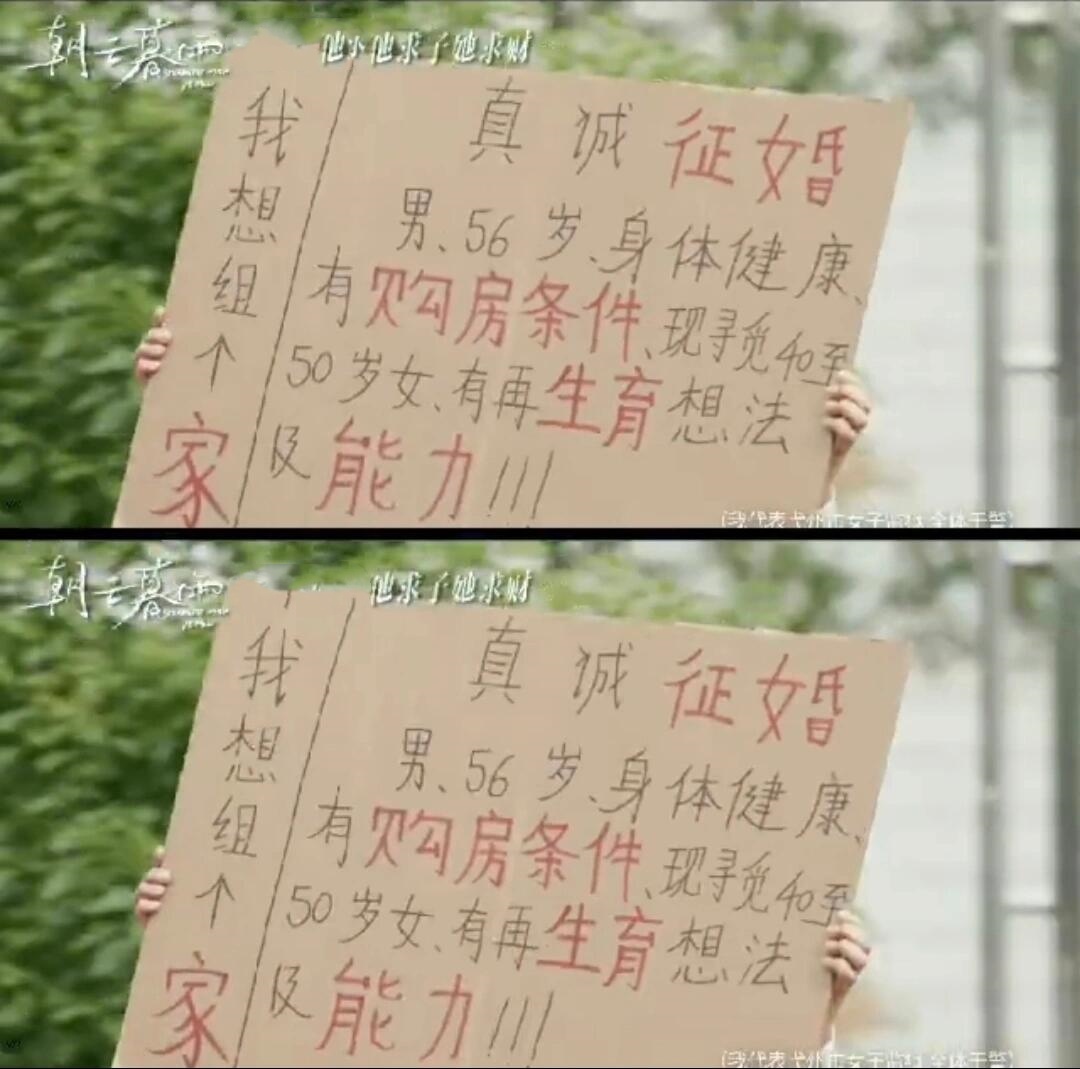 朝云暮雨
他求子她求财
真诚征婚
男、56岁、身体健康、
有购房条件、现寻觅40至
50岁女、有再生育想法
及能力!!!
我想组个家
朝云暮雨
他求子她求财
真诚征婚
男、56岁、身体健康、
有购房条件、现寻觅40至
50岁女、有再生育想法
及能力!!!
我想组个家